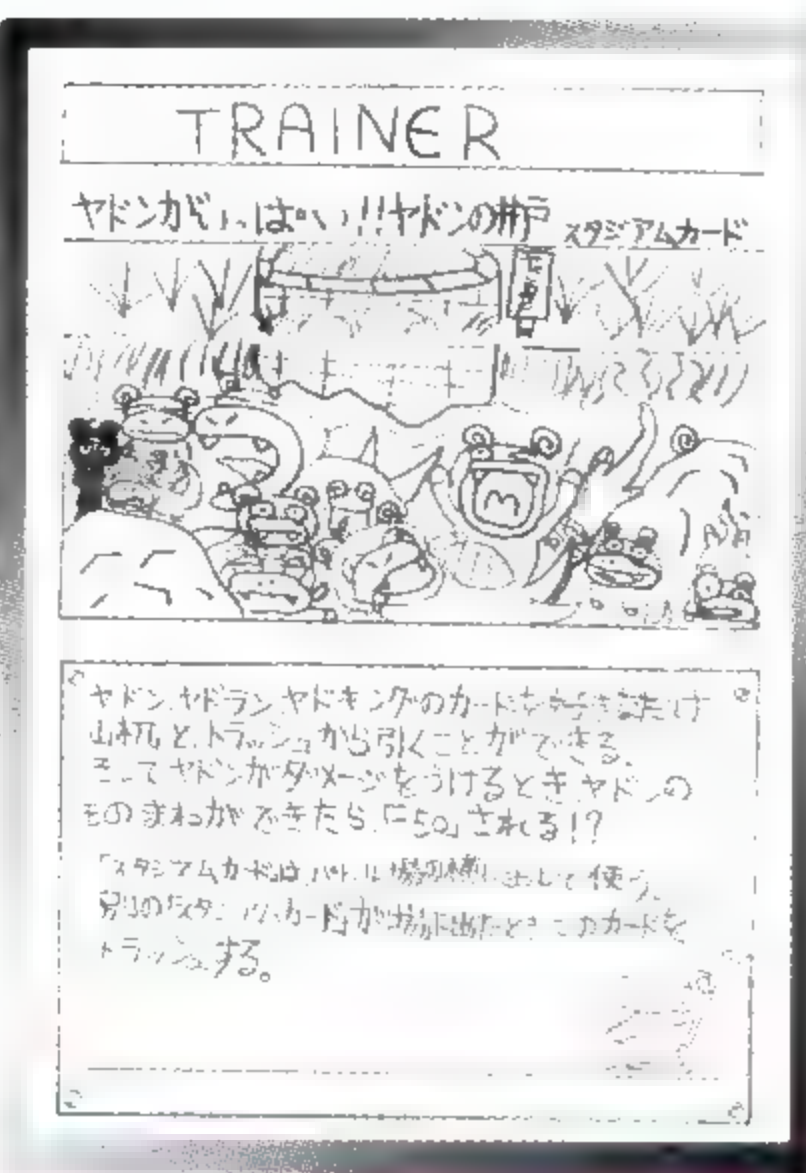 TRAINER
ヤドンがいっぱい!!ヤドンの井戸 スタジアムカード
ヤドン、ヤドラン、ヤドキングのカードを好きなだけ
山札と、トラッシュから引くことができる。
そしてヤドンがダメージをうけるとき、ヤドンの
ものまねができたら「-50」される!?
「スタジアムカード」はバトル場の横に出して使う。
別の「スタジアムカード」が場に出たとき、このカードを
トラッシュする。